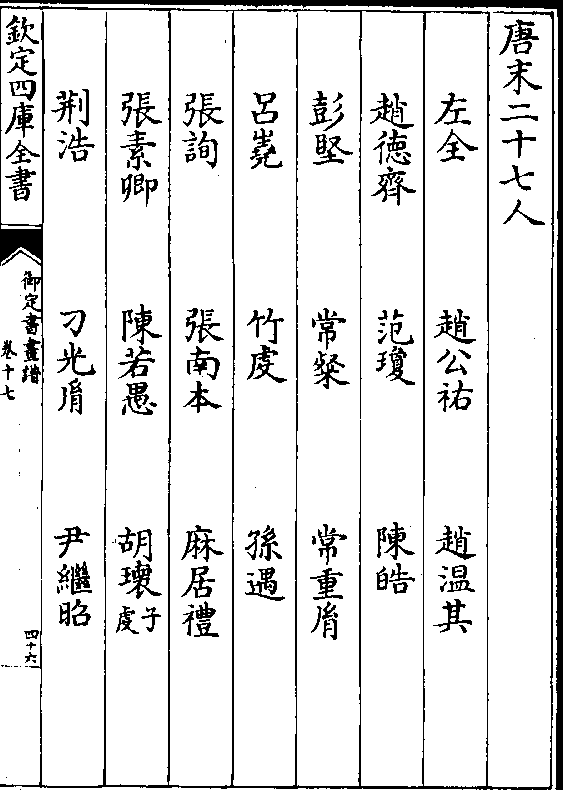 唐末二十七人
左全 趙公祐 趙温其
趙德齊 范瓊 陳皓
彭堅 常粲 常重𦙍
呂嶤 竹虔 孫遇
張詢 張南本 麻居禮
張素卿 陳若愚 胡瓌子虔
荆浩 刁光𦙍 尹繼昭
欽定四庫全書 御定書畫譜 卷十七 四十六